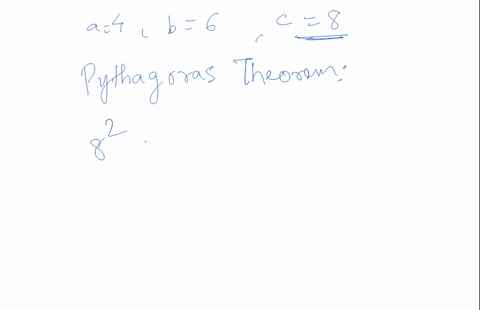 a=4, b=6, c=8
Pythagoras Theorem:
8²